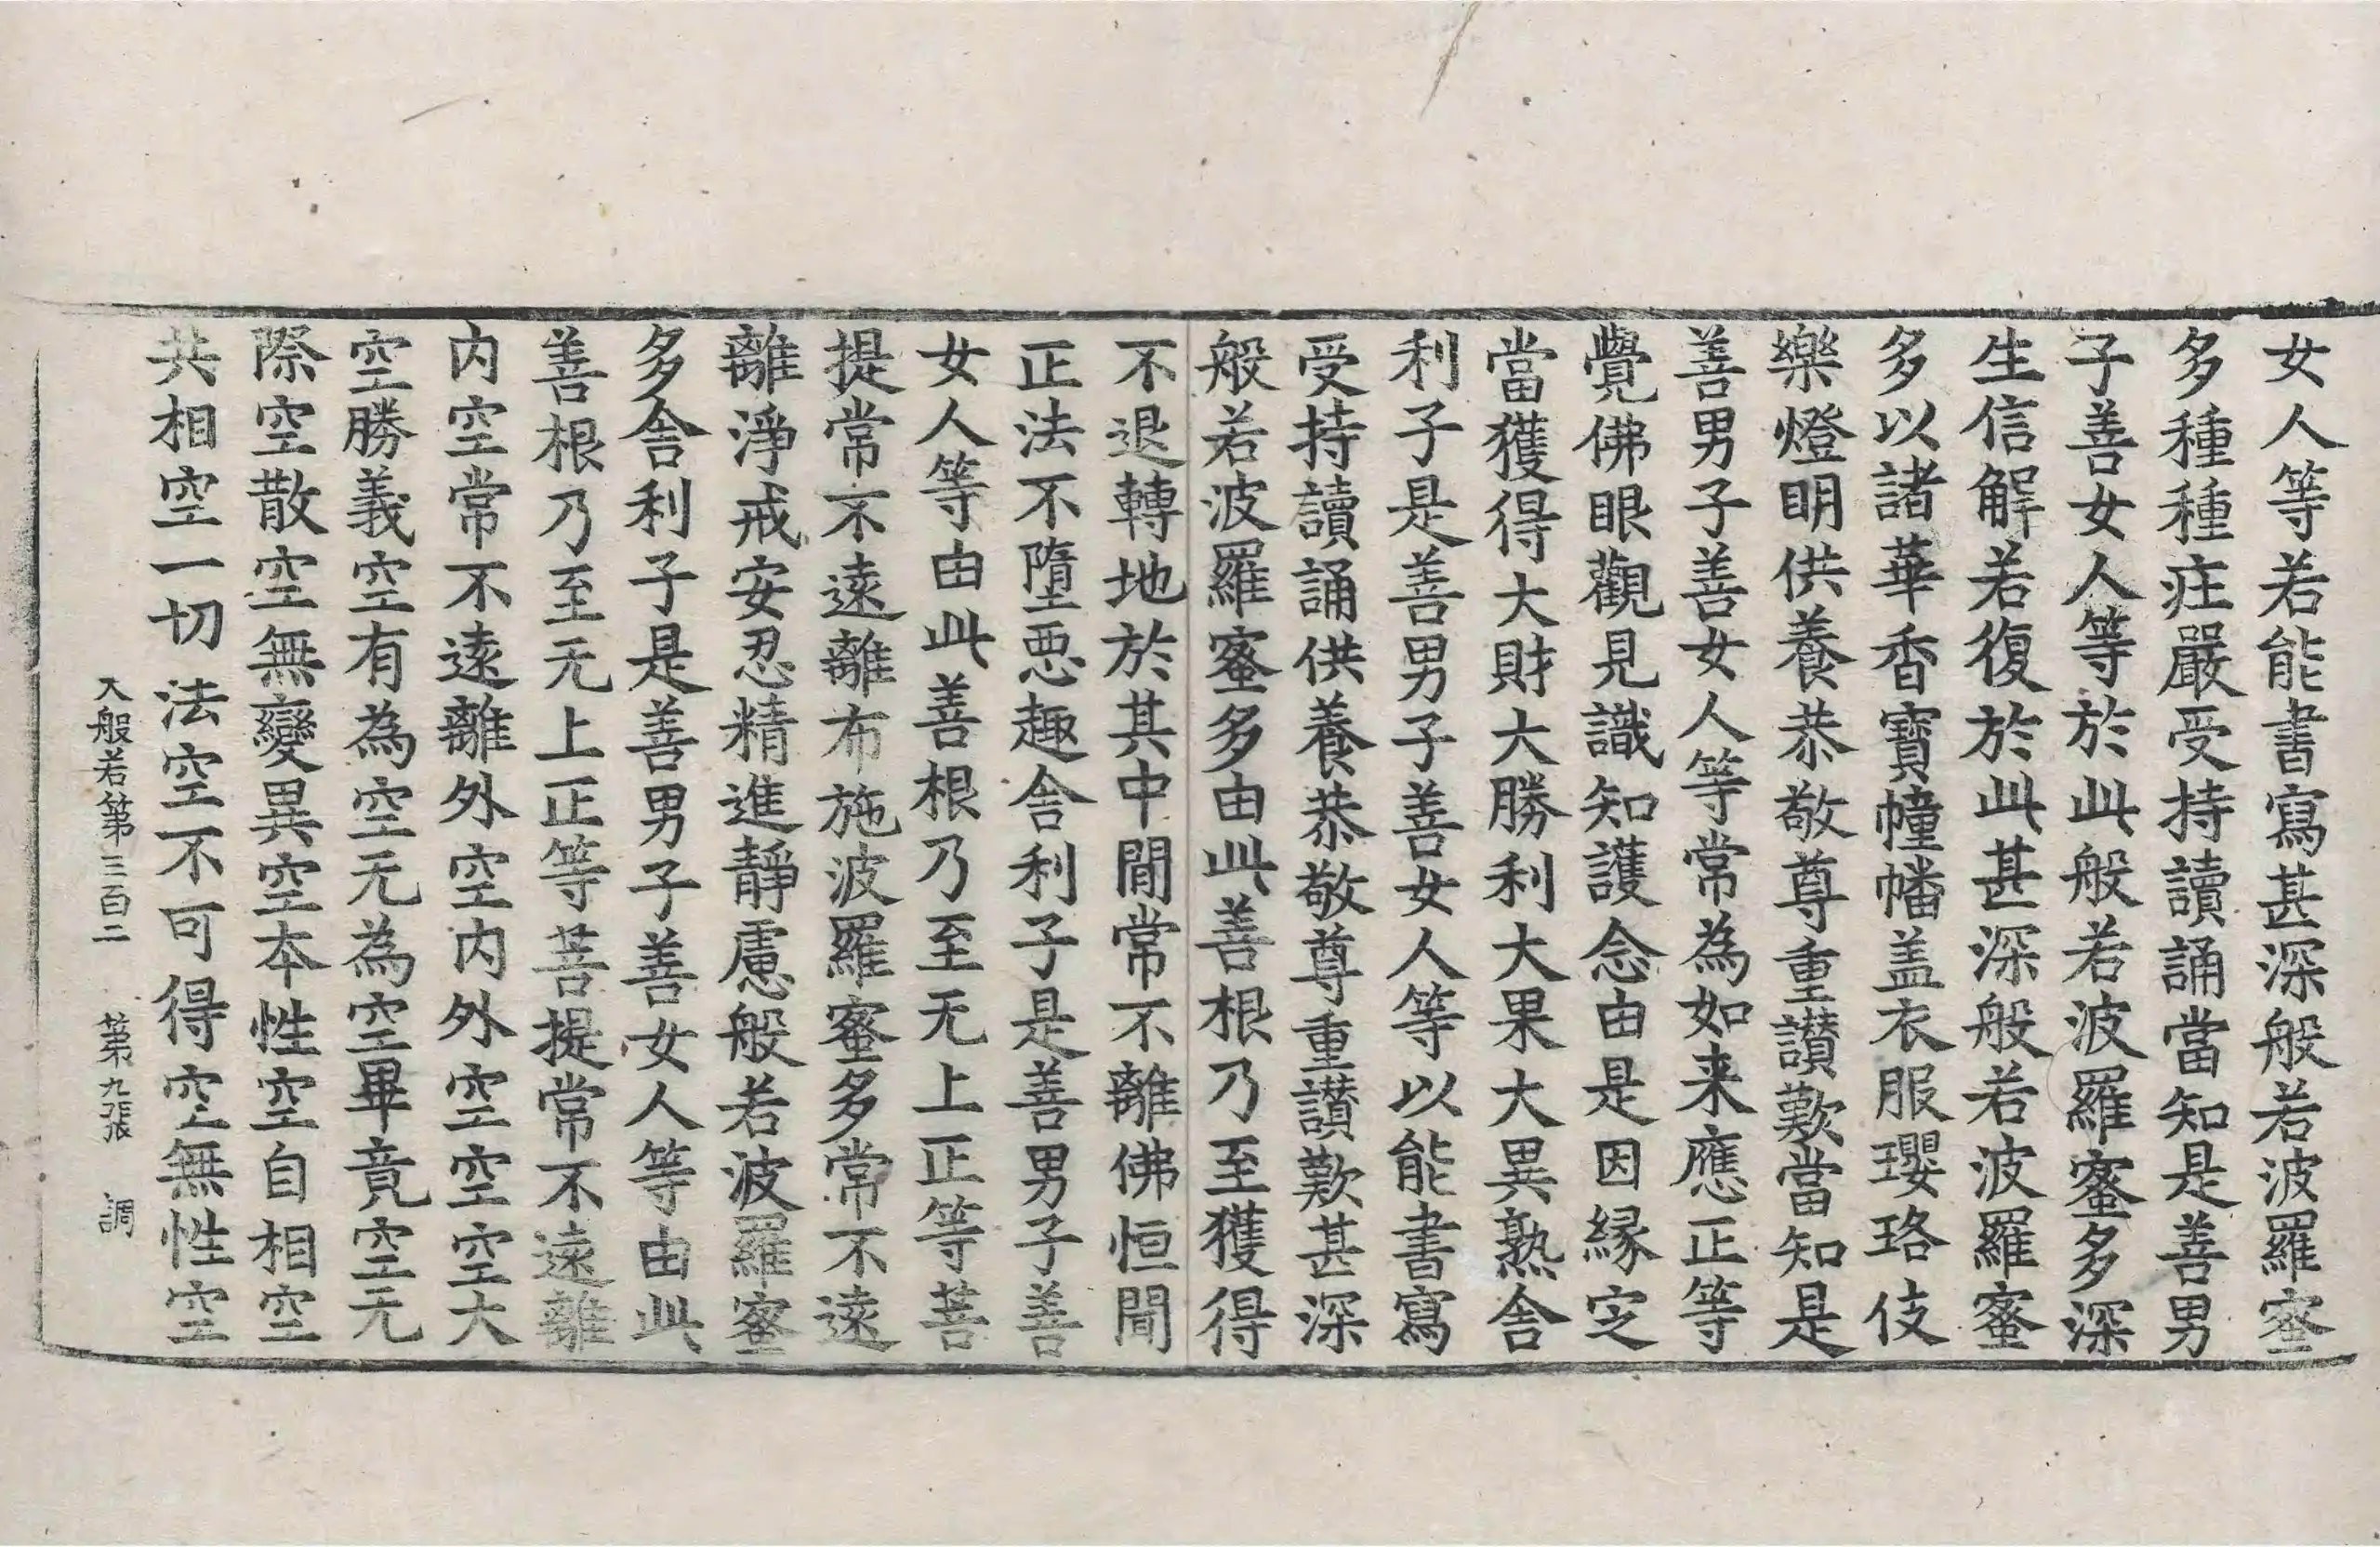 女人等若能書寫甚深般若波羅蜜
多種種莊嚴受持讀誦當知是善男
子善女人等於此般若波羅蜜多深
生信解若復於此甚深般若波羅蜜
多以諸華香寶幢幡盖衣服瓔珞伎
樂燈明供養恭敬尊重讃歎當知是
善男子善女人等常為如来應正等
覺佛眼觀見識知護念由是因縁定
當獲得大財大勝利大果大異熟舍
利子是善男子善女人等以能書寫
受持讀誦供養恭敬尊重讃歎甚深
般若波羅蜜多由此善根乃至獲得
不退轉地於其中間常不離佛恒聞
正法不墮悪趣舍利子是善男子善
女人等由此善根乃至无上正等菩
提常不遠離布施波羅蜜多常不遠
離淨戒安忍精進靜慮般若波羅蜜
多舍利子是善男子善女人等由此
善根乃至无上正等菩提常不遠離
内空常不遠離外空内外空空空大
空勝義空有為空无為空畢竟空无
際空散空無變異空本性空自相空
共相空一切法空不可得空無性空
大般若第三百二 第九張 調